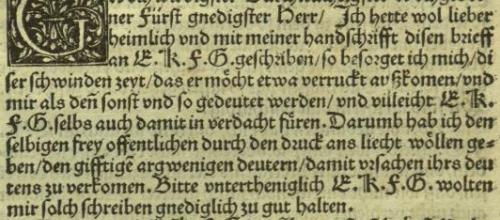 ner Fürst gnedigster Herr/ Jch hette wol lieber
heimlich vnd mit meiner handschrifft disen brieff
an E. K. F. G. geschriben/ so besorget ich mich/ di
ser schwinden zeyt/ das er möcht etwa verruckt außkomen/ vnd
mir als deñ sonst vnd so gedeutet werden/ vnd villeicht E. K.
F. G. selbs auch damit in verdacht füren. Darumb hab ich den
selbigen frey offentlichen durch den druck ans liecht wöllen ge-
ben/ den gifftigē argwenigen deutern/ damit vrsachen ihrs deu
tens zu verkomen. Bitte vntertheniglich E. K. F. G. wolten
mir solch schreiben gnediglich zu gut halten.